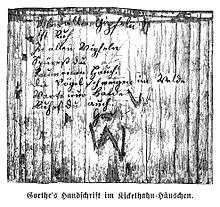 Ueber allen Gipfeln
Ist Ruh
In allen Wipfeln
Spürest du
Kaum einen Hauch
Die Vögel schweigen im Walde
Warte nur balde
Ruhest du auch
Goethe's Handschrift im Kickelhahn-Häuschen.